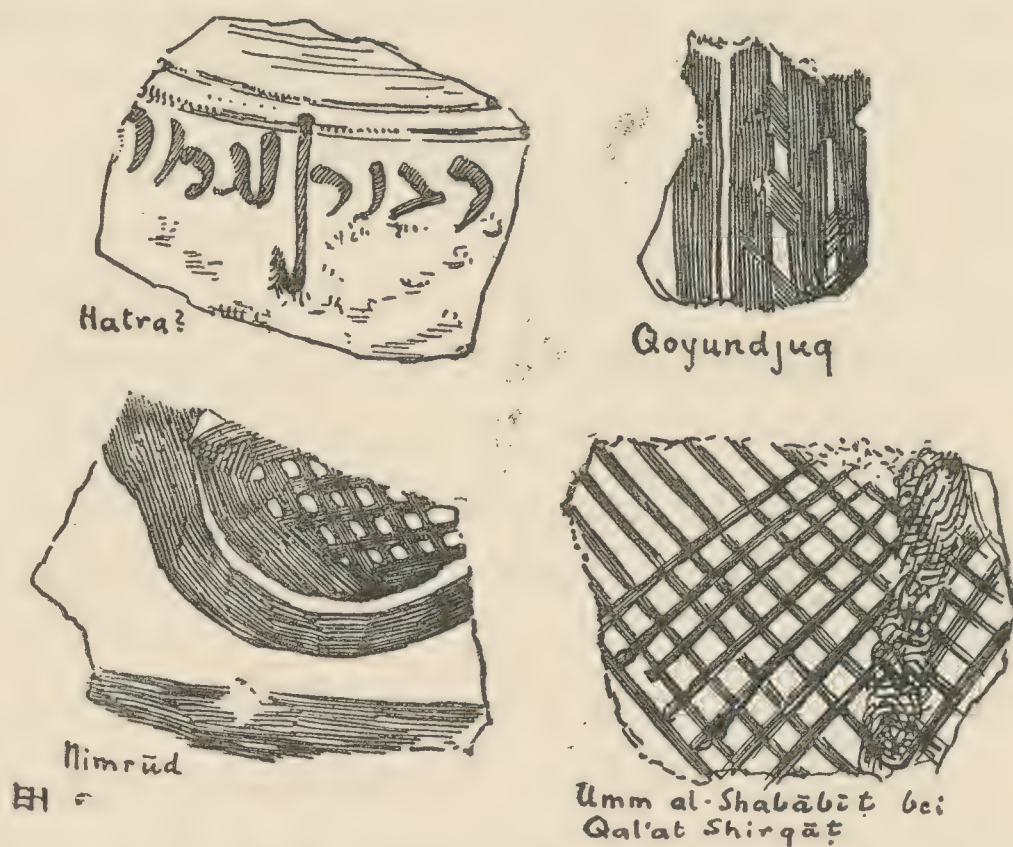 Hatra?
Qoyundjuq
Nimrūd
EH
Umm al-Shabābīṭ bei
Qal'at Shirqāṭ